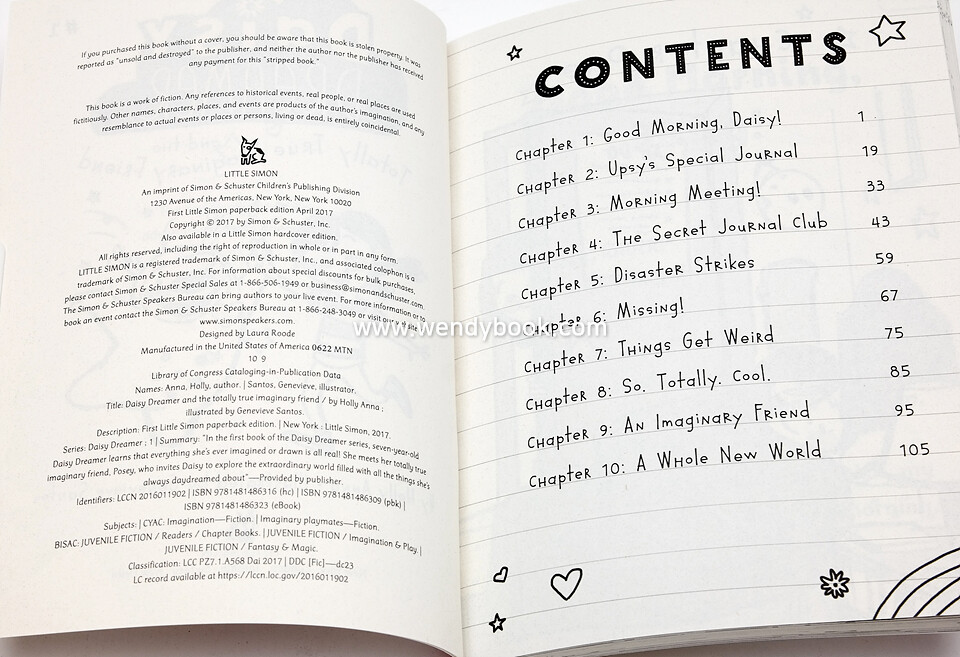 If you purchased this book without a cover, you should be aware that this book is stolen property. It was
reported as "unsold and destroyed" to the publisher, and neither the author nor the publisher has received
any payment for this "stripped book."
This book is a work of fiction. Any references to historical events, real people, or real places are used
fictitiously. Other names, characters, places, and events are products of the author's imagination, and any
resemblance to actual events or places or persons, living or dead, is entirely coincidental.
LITTLE SIMON
An imprint of Simon & Schuster Children's Publishing Division
1230 Avenue of the Americas, New York, New York 10020
First Little Simon paperback edition April 2017
Copyright © 2017 by Simon & Schuster, Inc.
Also available in a Little Simon hardcover edition.
All rights reserved, including the right of reproduction in whole or in part in any form.
LITTLE SIMON is a registered trademark of Simon & Schuster, Inc., and associated colophon is a
trademark of Simon & Schuster, Inc. For information about special discounts for bulk purchases,
please contact Simon & Schuster Special Sales at 1-866-506-1949 or business@simonandschuster.com.
The Simon & Schuster Speakers Bureau can bring authors to your live event. For more information or to
book an event contact the Simon & Schuster Speakers Bureau at 1-866-248-3049 or visit our
www.simonspeakers.com.
Designed by Laura Roode
Manufactured in the United States of America 0622 MTN
10 9
Library of Congress Cataloging-in-Publication Data
Names: Anna, Holly, author. | Santos, Genevieve, illustrator.
Title: Daisy Dreamer and the totally true imaginary friend / by Holly Anna ;
illustrated by Genevieve Santos.
Description: First Little Simon paperback edition. | New York : Little Simon, 2017.
Series: Daisy Dreamer ; 1 | Summary: "In the first book of the Daisy Dreamer series, seven-year-old
Daisy Dreamer learns that everything she's ever imagined or drawn is all real! She meets her totally true
imaginary friend, Posey, who invites Daisy to explore the extraordinary world filled with all the things she's
always daydreamed about"—Provided by publisher.
Identifiers: LCCN 2016011902 | ISBN 9781481486316 (hc) | ISBN 9781481486309 (pbk) |
ISBN 9781481486323 (eBook)
Subjects: | CYAC: Imagination—Fiction. | Imaginary playmates—Fiction.
BISAC: JUVENILE FICTION / Readers / Chapter Books. | JUVENILE FICTION / Imagination & Play. |
JUVENILE FICTION / Fantasy & Magic.
Classification: LCC PZ7.1.A568 Dai 2017 | DDC [Fic]—dc23
LC record available at https://lccn.loc.gov/2016011902
CONTENTS
Chapter 1: Good Morning, Daisy! 1
Chapter 2: Upsy's Special Journal 19
Chapter 3: Morning Meeting! 33
Chapter 4: The Secret Journal Club 43
Chapter 5: Disaster Strikes 59
Chapter 6: Missing! 67
Chapter 7: Things Get Weird 75
Chapter 8: So. Totally. Cool. 85
Chapter 9: An Imaginary Friend 95
Chapter 10: A Whole New World 105
www.wendybook.com